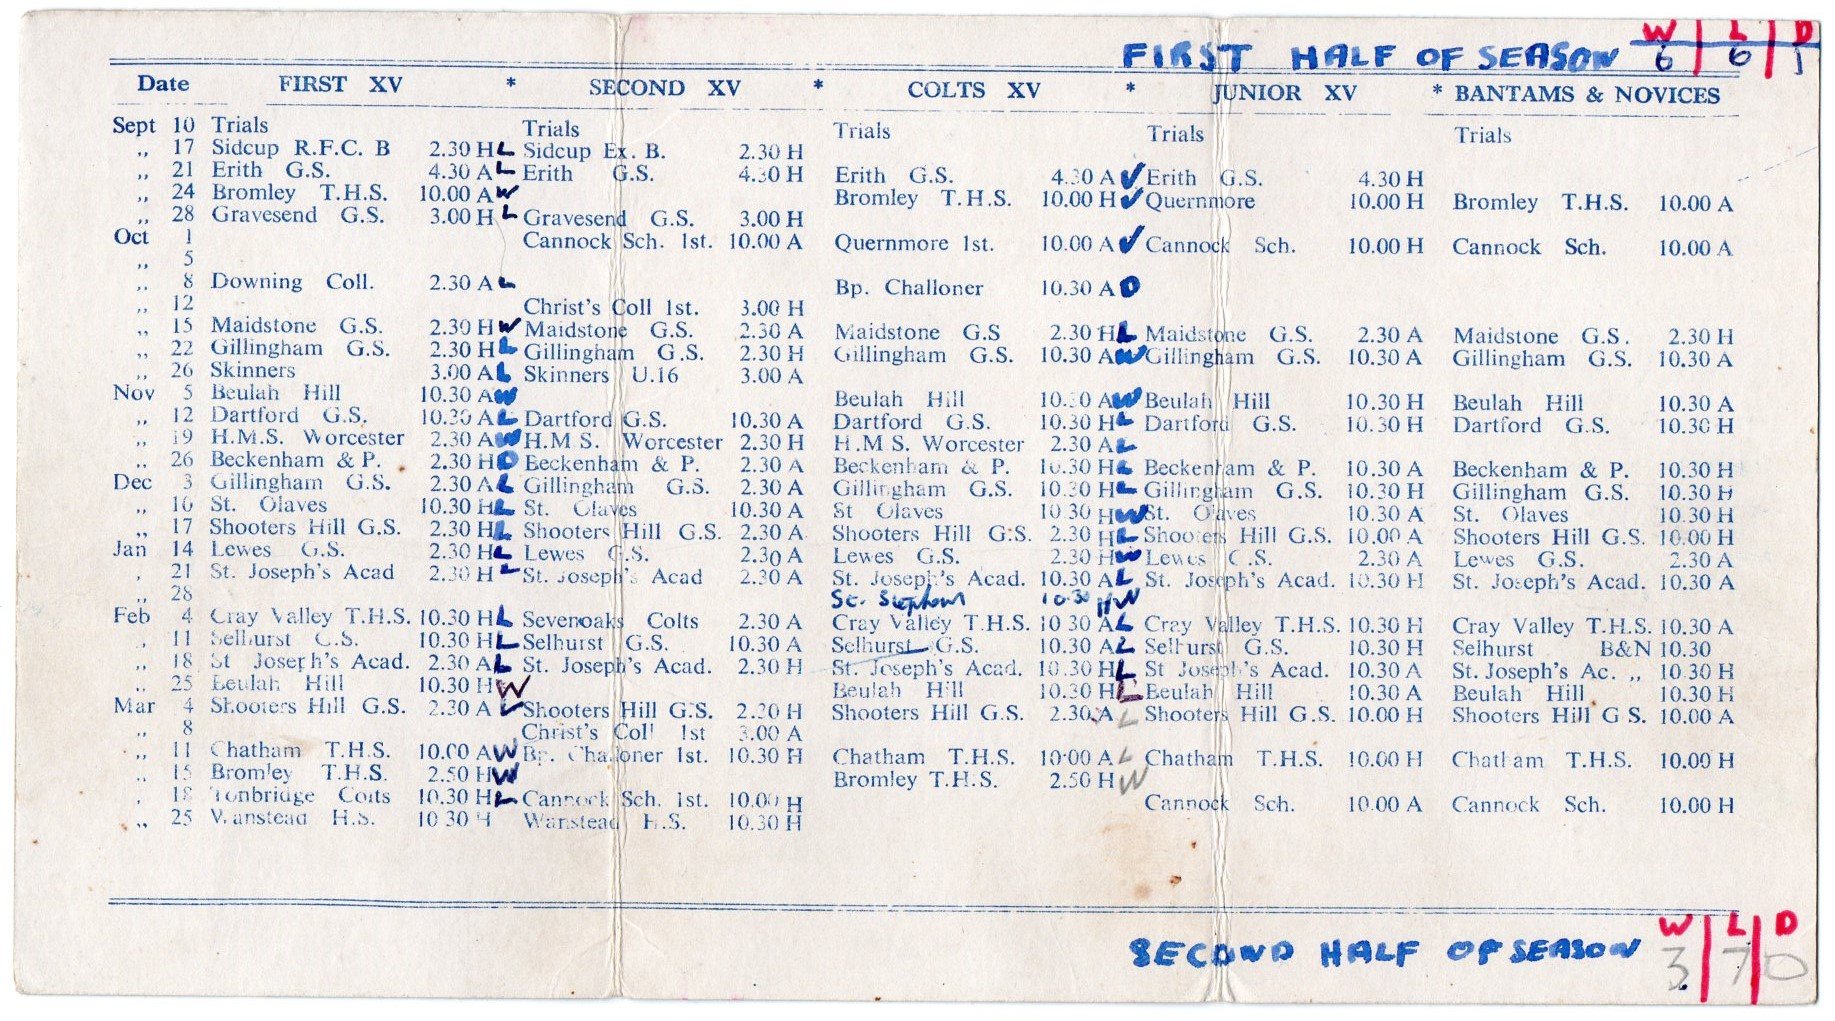 FIRST HALF OF SEASON W 6 L 6 D 1
Date FIRST XV * SECOND XV * COLTS XV * JUNIOR XV * BANTAMS & NOVICES
Sept 10 Trials Trials Trials Trials Trials
,, 17 Sidcup R.F.C. B 2.30 H L Sidcup Ex. B. 2.30 H
,, 21 Erith G.S. 4.30 A L Erith G.S. 4.30 H Erith G.S. 4.30 A ✓ Erith G.S. 4.30 H
,, 24 Bromley T.H.S. 10.00 A W Bromley T.H.S. 10.00 H ✓ Quernmore 10.00 H Bromley T.H.S. 10.00 A
,, 28 Gravesend G.S. 3.00 H L Gravesend G.S. 3.00 H
Oct 1 Cannock Sch. 1st. 10.00 A Quernmore 1st. 10.00 A ✓ Cannock Sch. 10.00 H Cannock Sch. 10.00 A
,, 5
,, 8 Downing Coll. 2.30 A L Bp. Challoner 10.30 A D
,, 12 Christ's Coll 1st. 3.00 H
,, 15 Maidstone G.S. 2.30 H W Maidstone G.S. 2.30 A Maidstone G.S 2.30 H L Maidstone G.S. 2.30 A Maidstone G.S. 2.30 H
,, 22 Gillingham G.S. 2.30 H L Gillingham G.S. 2.30 H Gillingham G.S. 10.30 A W Gillingham G.S. 10.30 A Gillingham G.S. 10.30 A
,, 26 Skinners 3.00 A L Skinners U.16 3.00 A
Nov 5 Beulah Hill 10.30 A W Beulah Hill 10.30 A W Beulah Hill 10.30 H Beulah Hill 10.30 A
,, 12 Dartford G.S. 10.30 A L Dartford G.S. 10.30 A Dartford G.S. 10.30 H L Dartford G.S. 10.30 H Dartford G.S. 10.30 H
,, 19 H.M.S. Worcester 2.30 A W H.M S. Worcester 2.30 H H.M S. Worcester 2.30 A L
,, 26 Beckenham & P. 2.30 H D Beckenham & P. 2.30 A Beckenham & P. 10.30 H L Beckenham & P. 10.30 A Beckenham & P. 10.30 H
Dec 3 Gillingham G.S. 2.30 A L Gillingham G.S. 2.30 A Gillingham G.S. 10.30 H L Gillingham G.S. 10.30 H Gillingham G.S. 10.30 H
,, 10 St. Olaves 10.30 H L St. Olaves 10.30 A St Olaves 10 30 H W St. Olaves 10.30 A St. Olaves 10.30 H
,, 17 Shooters Hill G.S. 2.30 H L Shooters Hill G.S. 2.30 A Shooters Hill G.S. 2.30 H L Shooters Hill G.S. 10.00 A Shooters Hill G.S. 10.00 H
Jan 14 Lewes G.S. 2.30 H L Lewes G.S. 2.30 A Lewes G.S. 2.30 H W Lewes G.S. 2.30 A Lewes G.S. 2.30 A
, 21 St. Joseph's Acad 2.30 H L St. Joseph's Acad 2.30 A St. Joseph's Acad. 10.30 A L St. Joseph's Acad. 10.30 H St. Joseph's Acad. 10.30 A
,, 28 St. 10.30 H W
Feb 4 Cray Valley T.H.S. 10.30 H L Sevenoaks Colts 2.30 A Cray Valley T.H.S. 10 30 A L Cray Valley T.H.S. 10.30 H Cray Valley T.H.S. 10.30 A
, 11 Selhurst G.S. 10.30 H L Selhurst G.S. 10.30 A Selhurst G.S. 10.30 A L Selhurst G.S. 10.30 H Selhurst B&N 10.30
,, 18 St Joseph's Acad. 2.30 A L St. Joseph's Acad. 2.30 H St. Joseph's Acad. 10.30 H L St Joseph's Acad. 10.30 A St. Joseph's Ac. ,, 10 30 H
,, 25 Beulah Hill 10.30 H W Beulah Hill 10.30 H L Beulah Hill 10.30 A Beulah Hill 10.30 H
Mar 4 Shooters Hill G.S. 2.30 A L Shooters Hill G.S. 2.30 H Shooters Hill G.S. 2.30 A L Shooters Hill G.S. 10.00 H Shooters Hill G S. 10.00 A
,, 8 Christ's Coll 1st 3.00 A
,, 11 Chatham T.H.S. 10.00 A W Bp. Challoner 1st. 10.30 H Chatham T.H.S. 10.00 A L Chatham T.H.S. 10.00 H Chatham T.H.S. 10.00 H
,, 15 Bromley T.H.S. 2.50 H W Bromley T.H.S. 2.50 H W
, 18 Tonbridge Colts 10.30 H L Cannock Sch. 1st. 10.00 H Cannock Sch. 10.00 A Cannock Sch. 10.00 H
,, 25 Wanstead H.S. 10 30 H Wanstead H.S. 10.30 H
SECOND HALF OF SEASON W 3 L 7 D 0